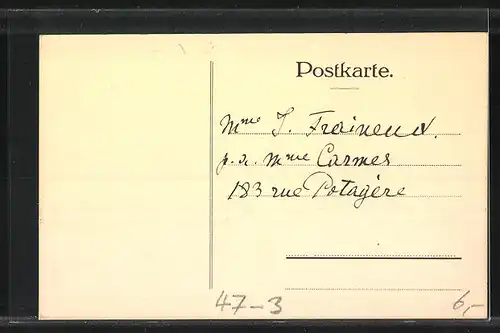 Postkarte.
Mme J. Fraineux.
p. a. Mme Carmes
183 rue Potagère
47-3
6,-